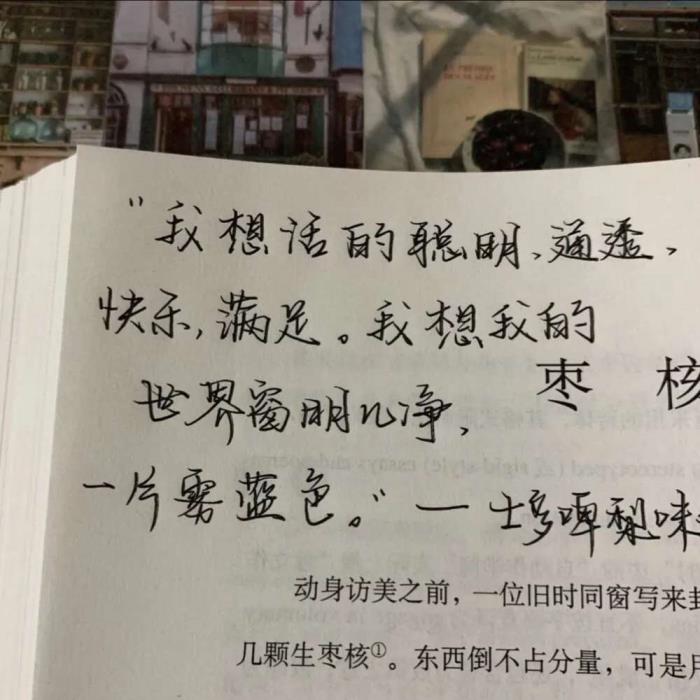 “我想活的聪明、通透，
快乐，满足。我想我的
世界窗明几净，
一片雾蓝色。”一
枣 核
动身访美之前，一位旧时同窗写来封
几颗生枣核①。东西倒不占分量，可是用